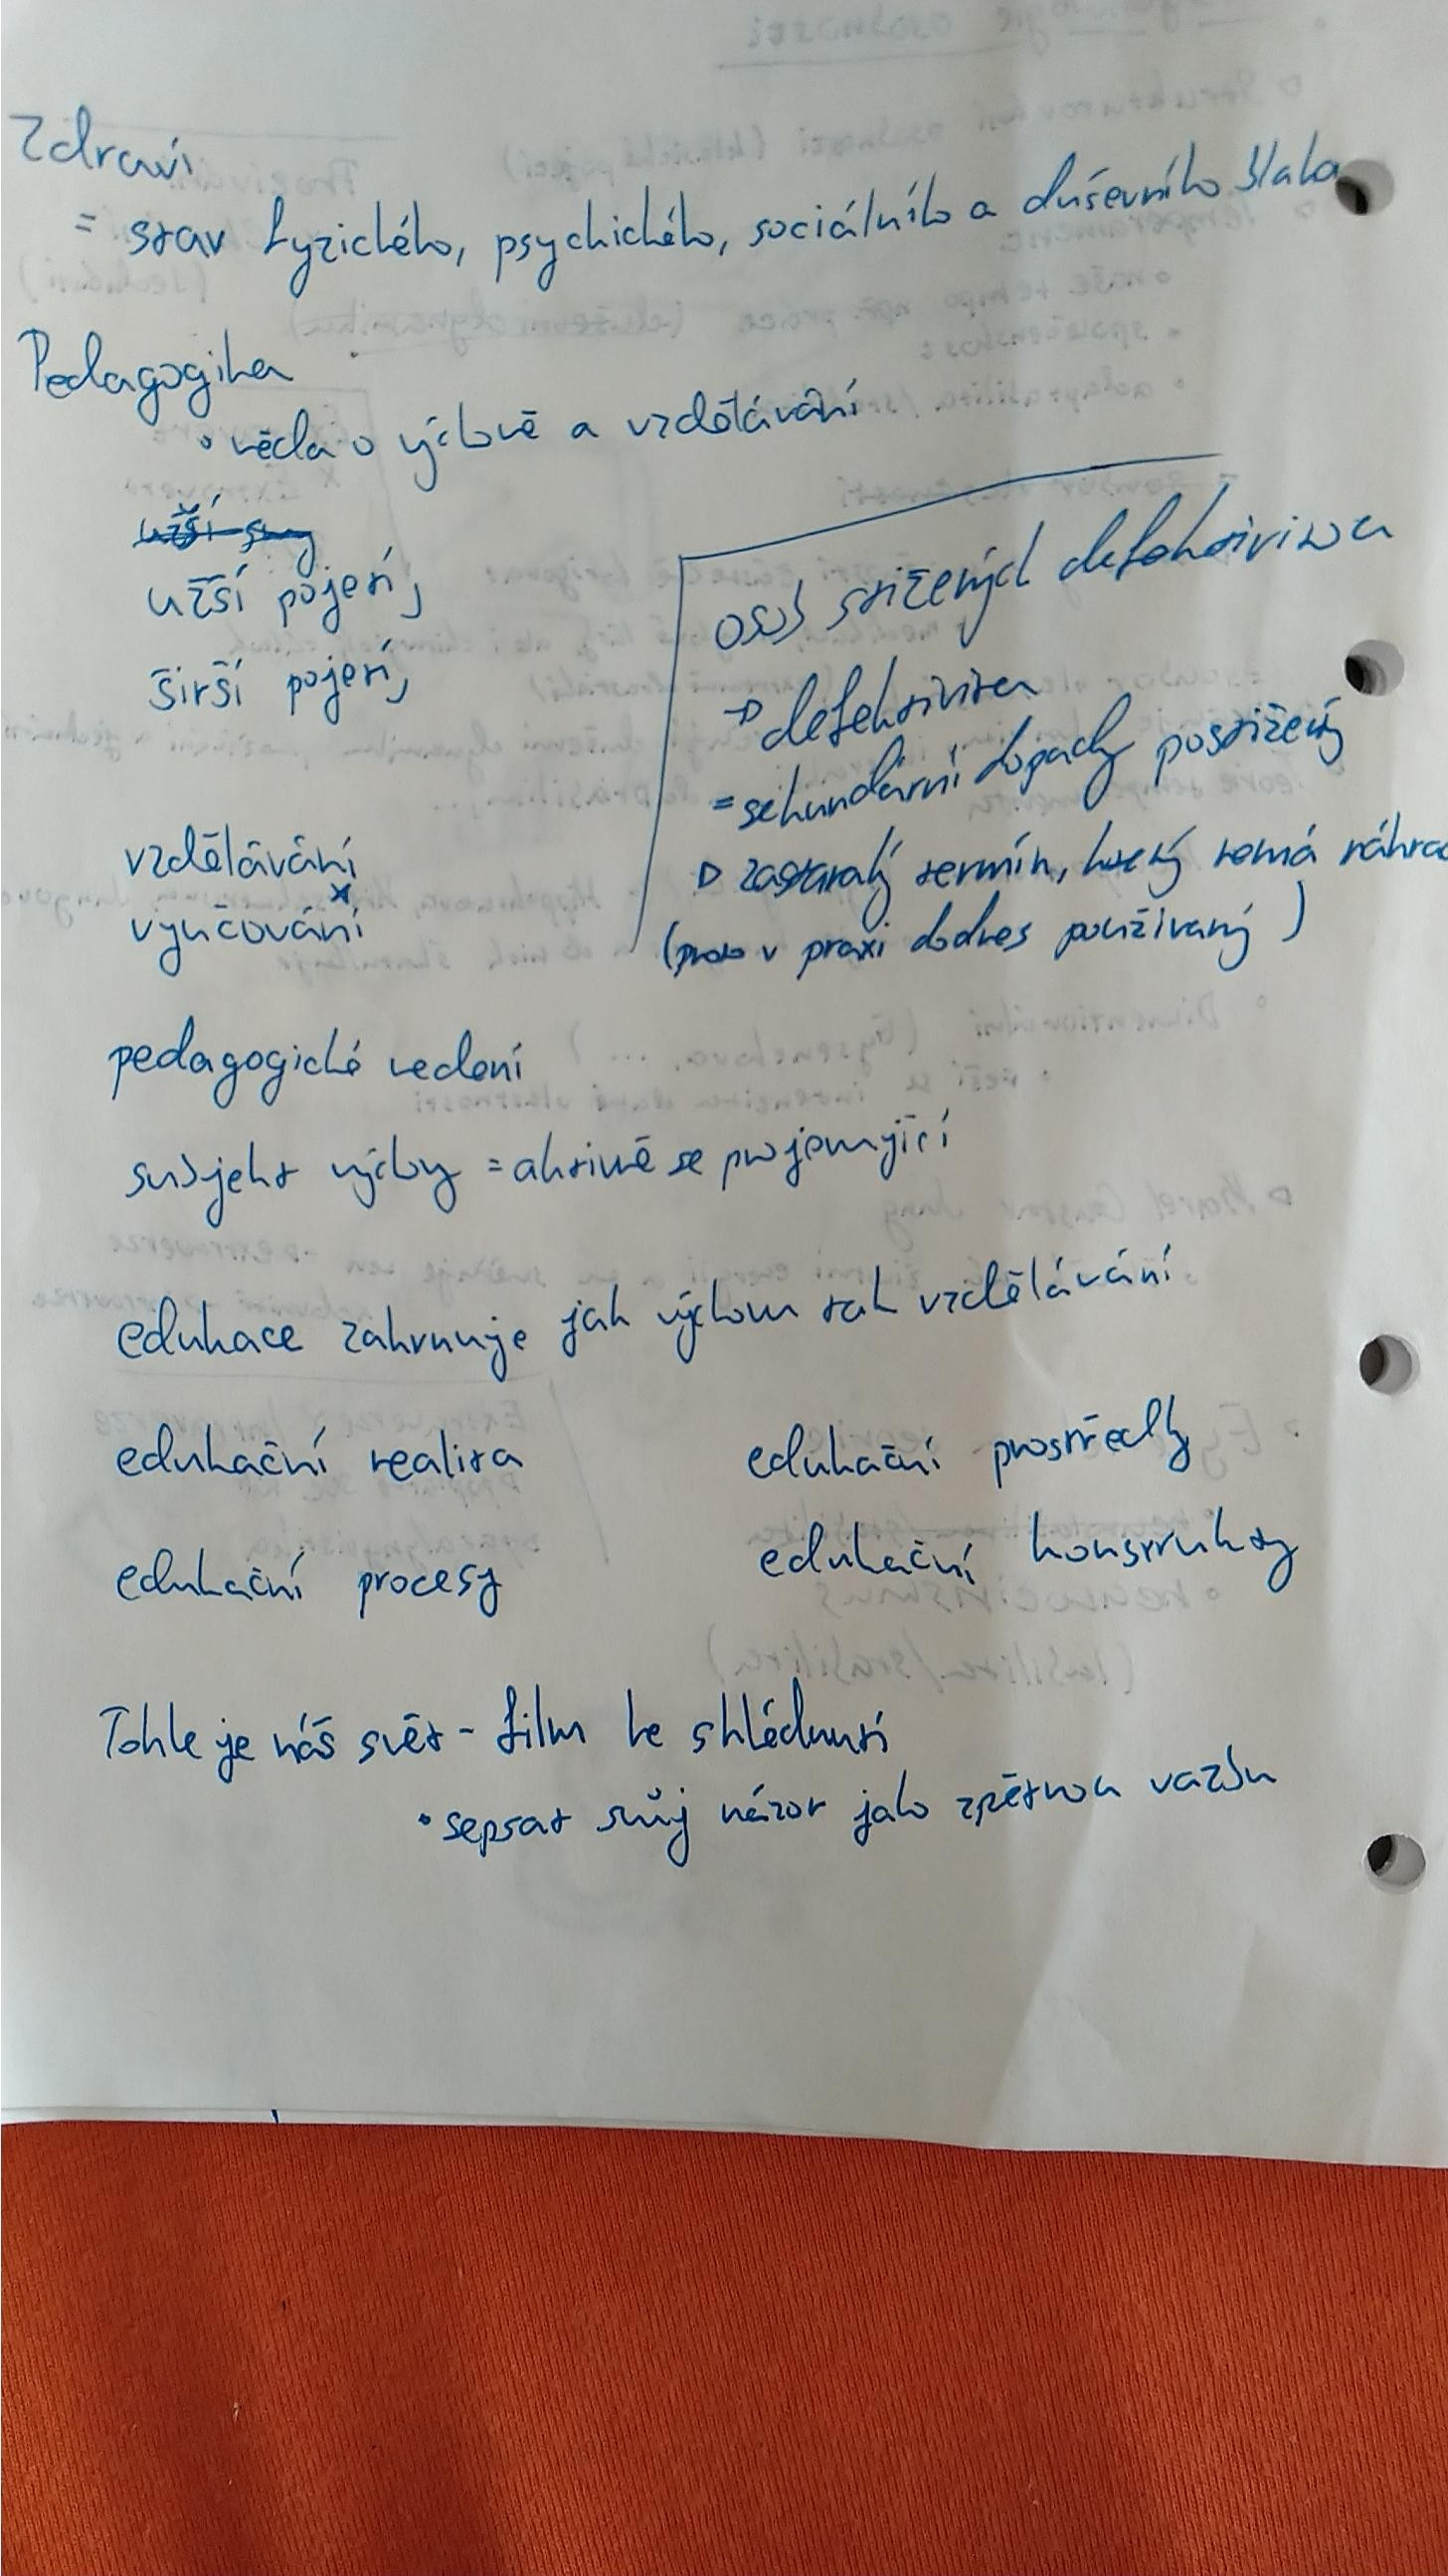 Zdraví
= stav fyzického, psychického, sociálního a duševního blaha
Pedagogika
• věda o výchově a vzdělávání
užší
užší pojetí,
širší pojetí,
vzdělávání
x
vyučování
osob stižených defektivitou
→ defektivita
= sekundární dopady postižený
▷ zastaralý termín, který nemá náhrad
(proto v praxi dodnes používaný)
pedagogické vedení
subjekt výchovy = aktivně se projevující
edukace zahrnuje jak výchovu tak vzdělávání
edukační realita
edukační prostředky
edukační procesy
edukační konstrukty
Tohle je náš svět - film ke shlédnutí
• sepsat svůj názor jako zpětnou vazbu